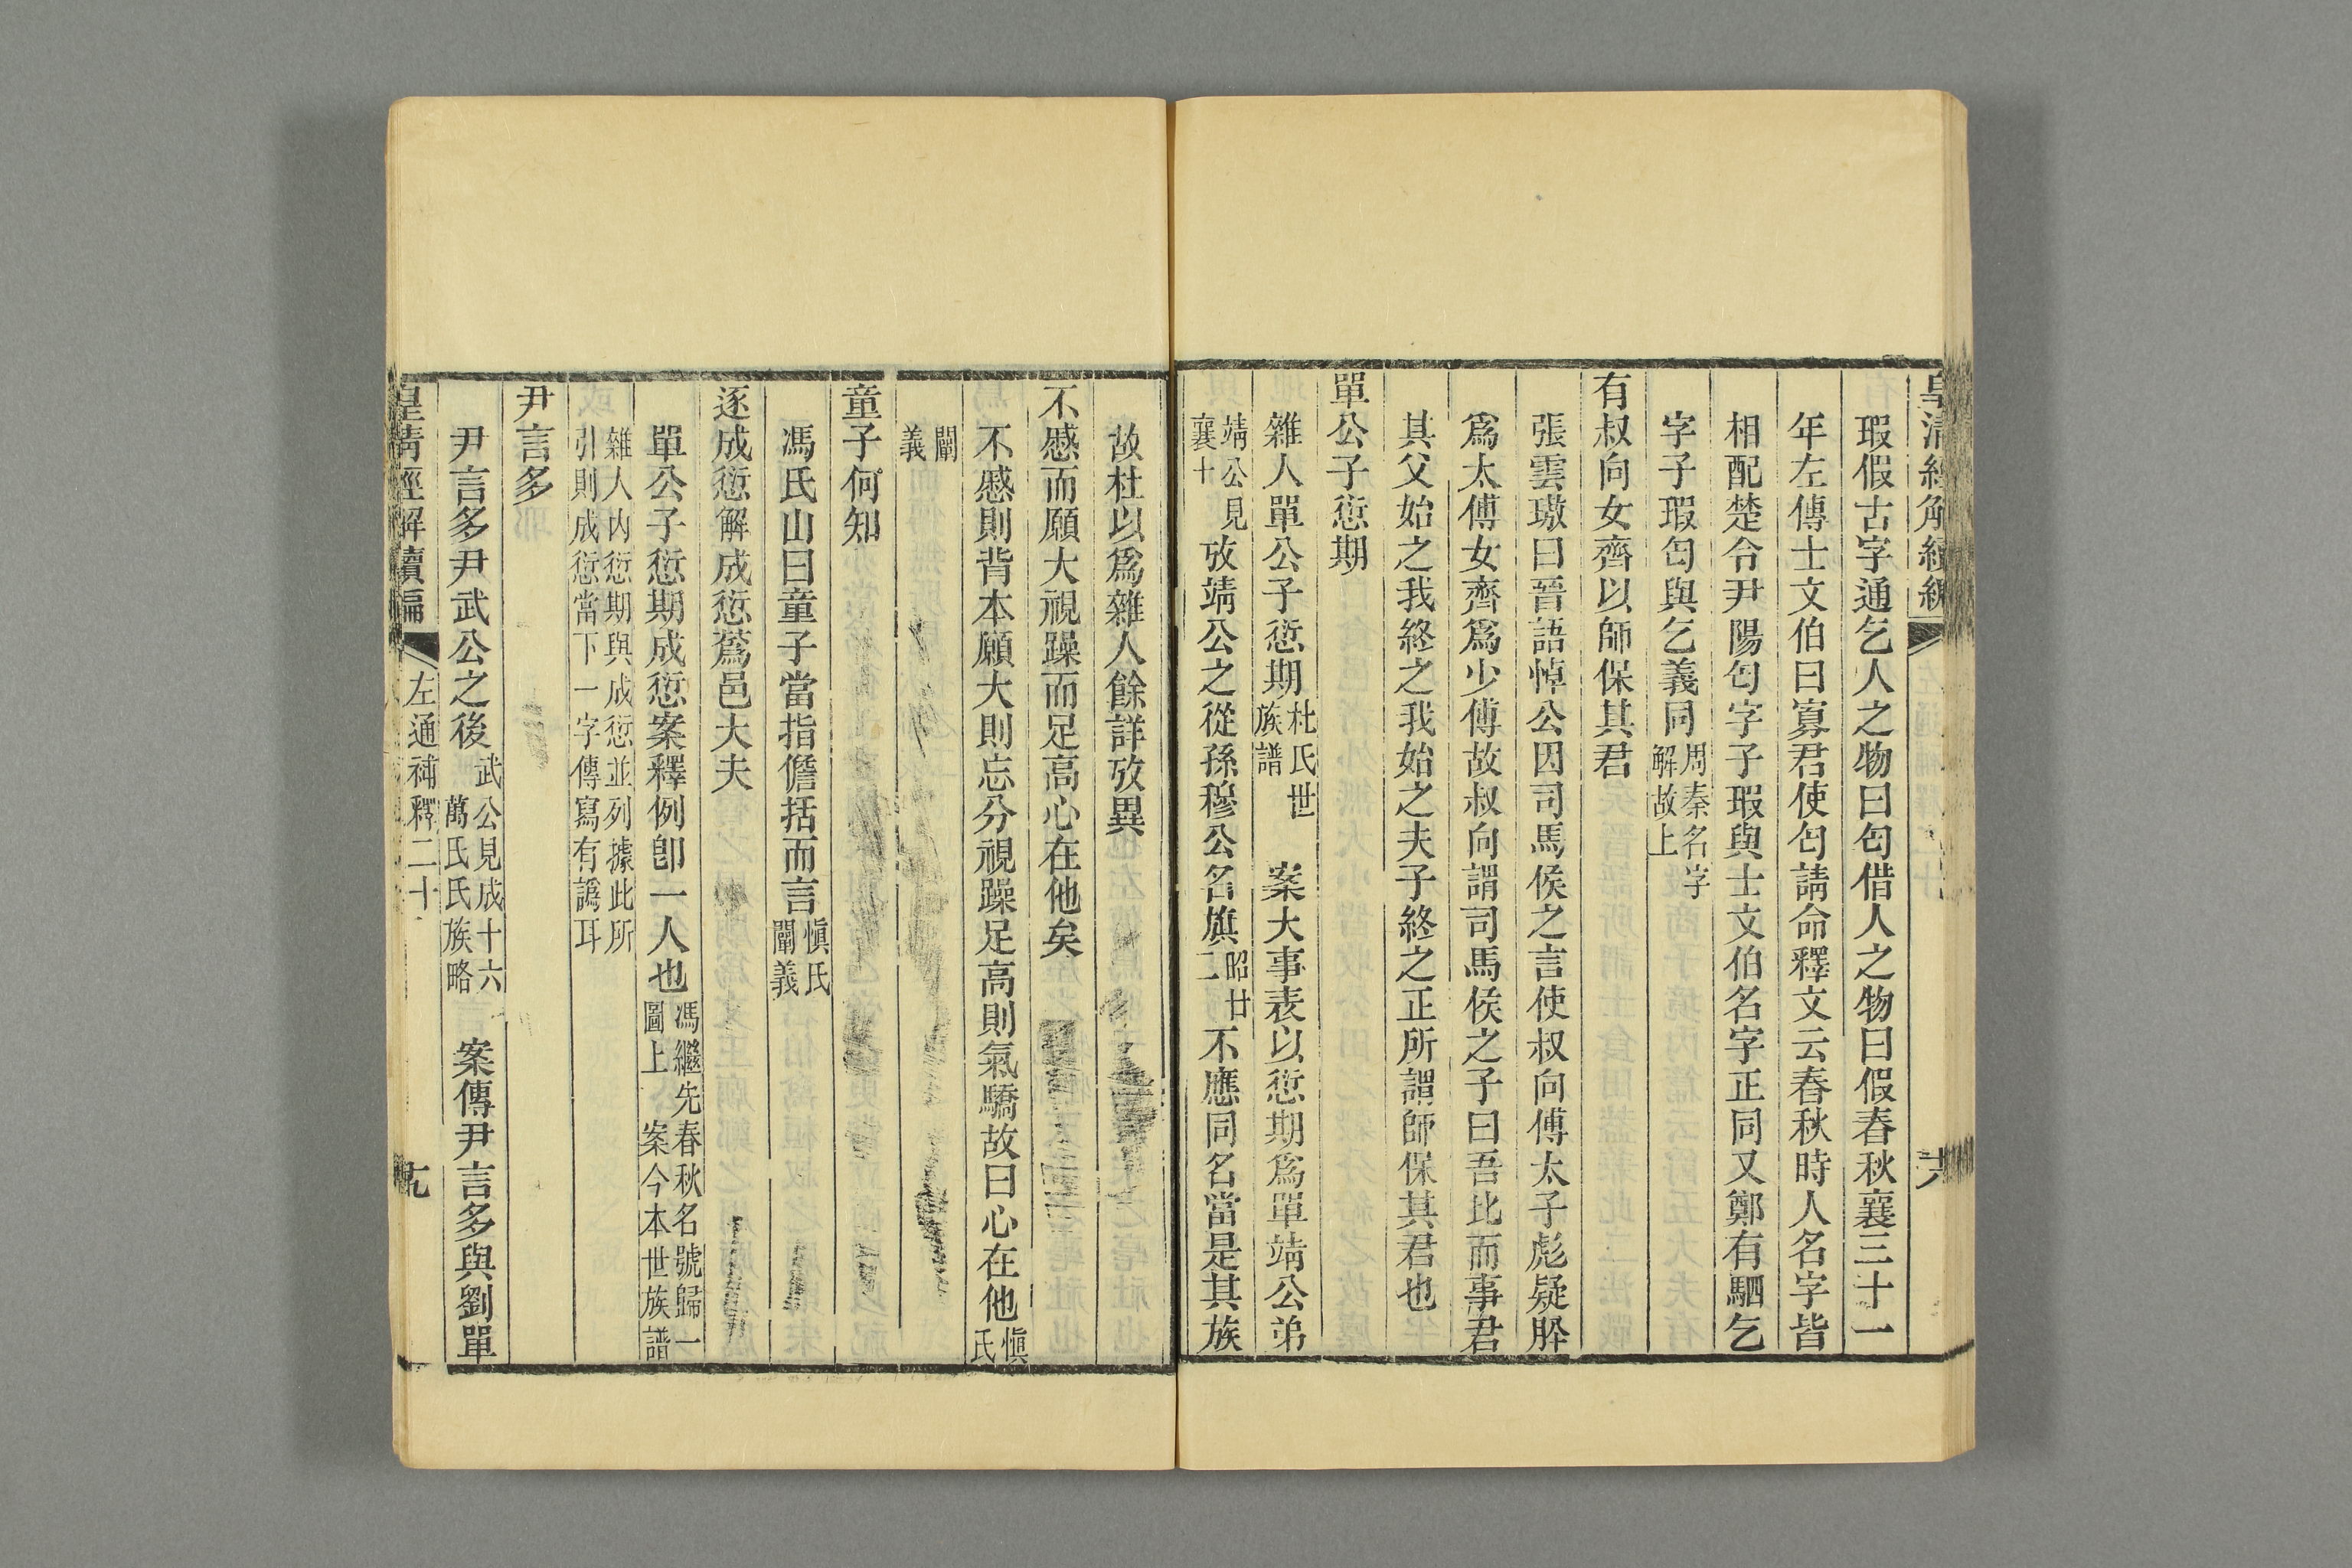 皇清經解續編
十八
瑕假古字通乞人之物曰匄借人之物曰假春秋襄三十一
年左傳士文伯曰寡君使匄請命釋文云春秋時人名字皆
相配楚令尹陽匄字子瑕與士文伯名字正同又鄭有駟乞
字子瑕匄與乞義同周秦名字解故上
有叔向女齊以師保其君
張雲璈曰晉語悼公因司馬侯之言使叔向傅太子彪疑卽
爲太傅女齊爲少傅故叔向謂司馬侯之子曰吾比而事君
其父始之我終之我始之夫子終之正所謂師保其君也
單公子愆期
雜人單公子愆期杜氏世族譜 案大事表以愆期爲單靖公弟
靖公見襄十攷靖公之從孫穆公名旗昭廿二不應同名當是其族
故杜以爲雜人餘詳攷異
不慼而願大視躁而足高心在他矣
不慼則背本願大則忘分視躁足高則氣驕故曰心在他愼氏
闡義
童子何知
馮氏山曰童子當指儋括而言愼氏闡義
逐成愆解成愆蒍邑大夫
單公子愆期成愆案釋例卽一人也馮繼先春秋名號歸一圖上 案今本世族譜
雜人内愆期與成愆並列據此所引則成愆當下一字傳寫有譌耳
尹言多
尹言多尹武公之後武公見成十六萬氏氏族略 案傳尹言多與劉單
皇清經解續編
左通補釋二十
十九